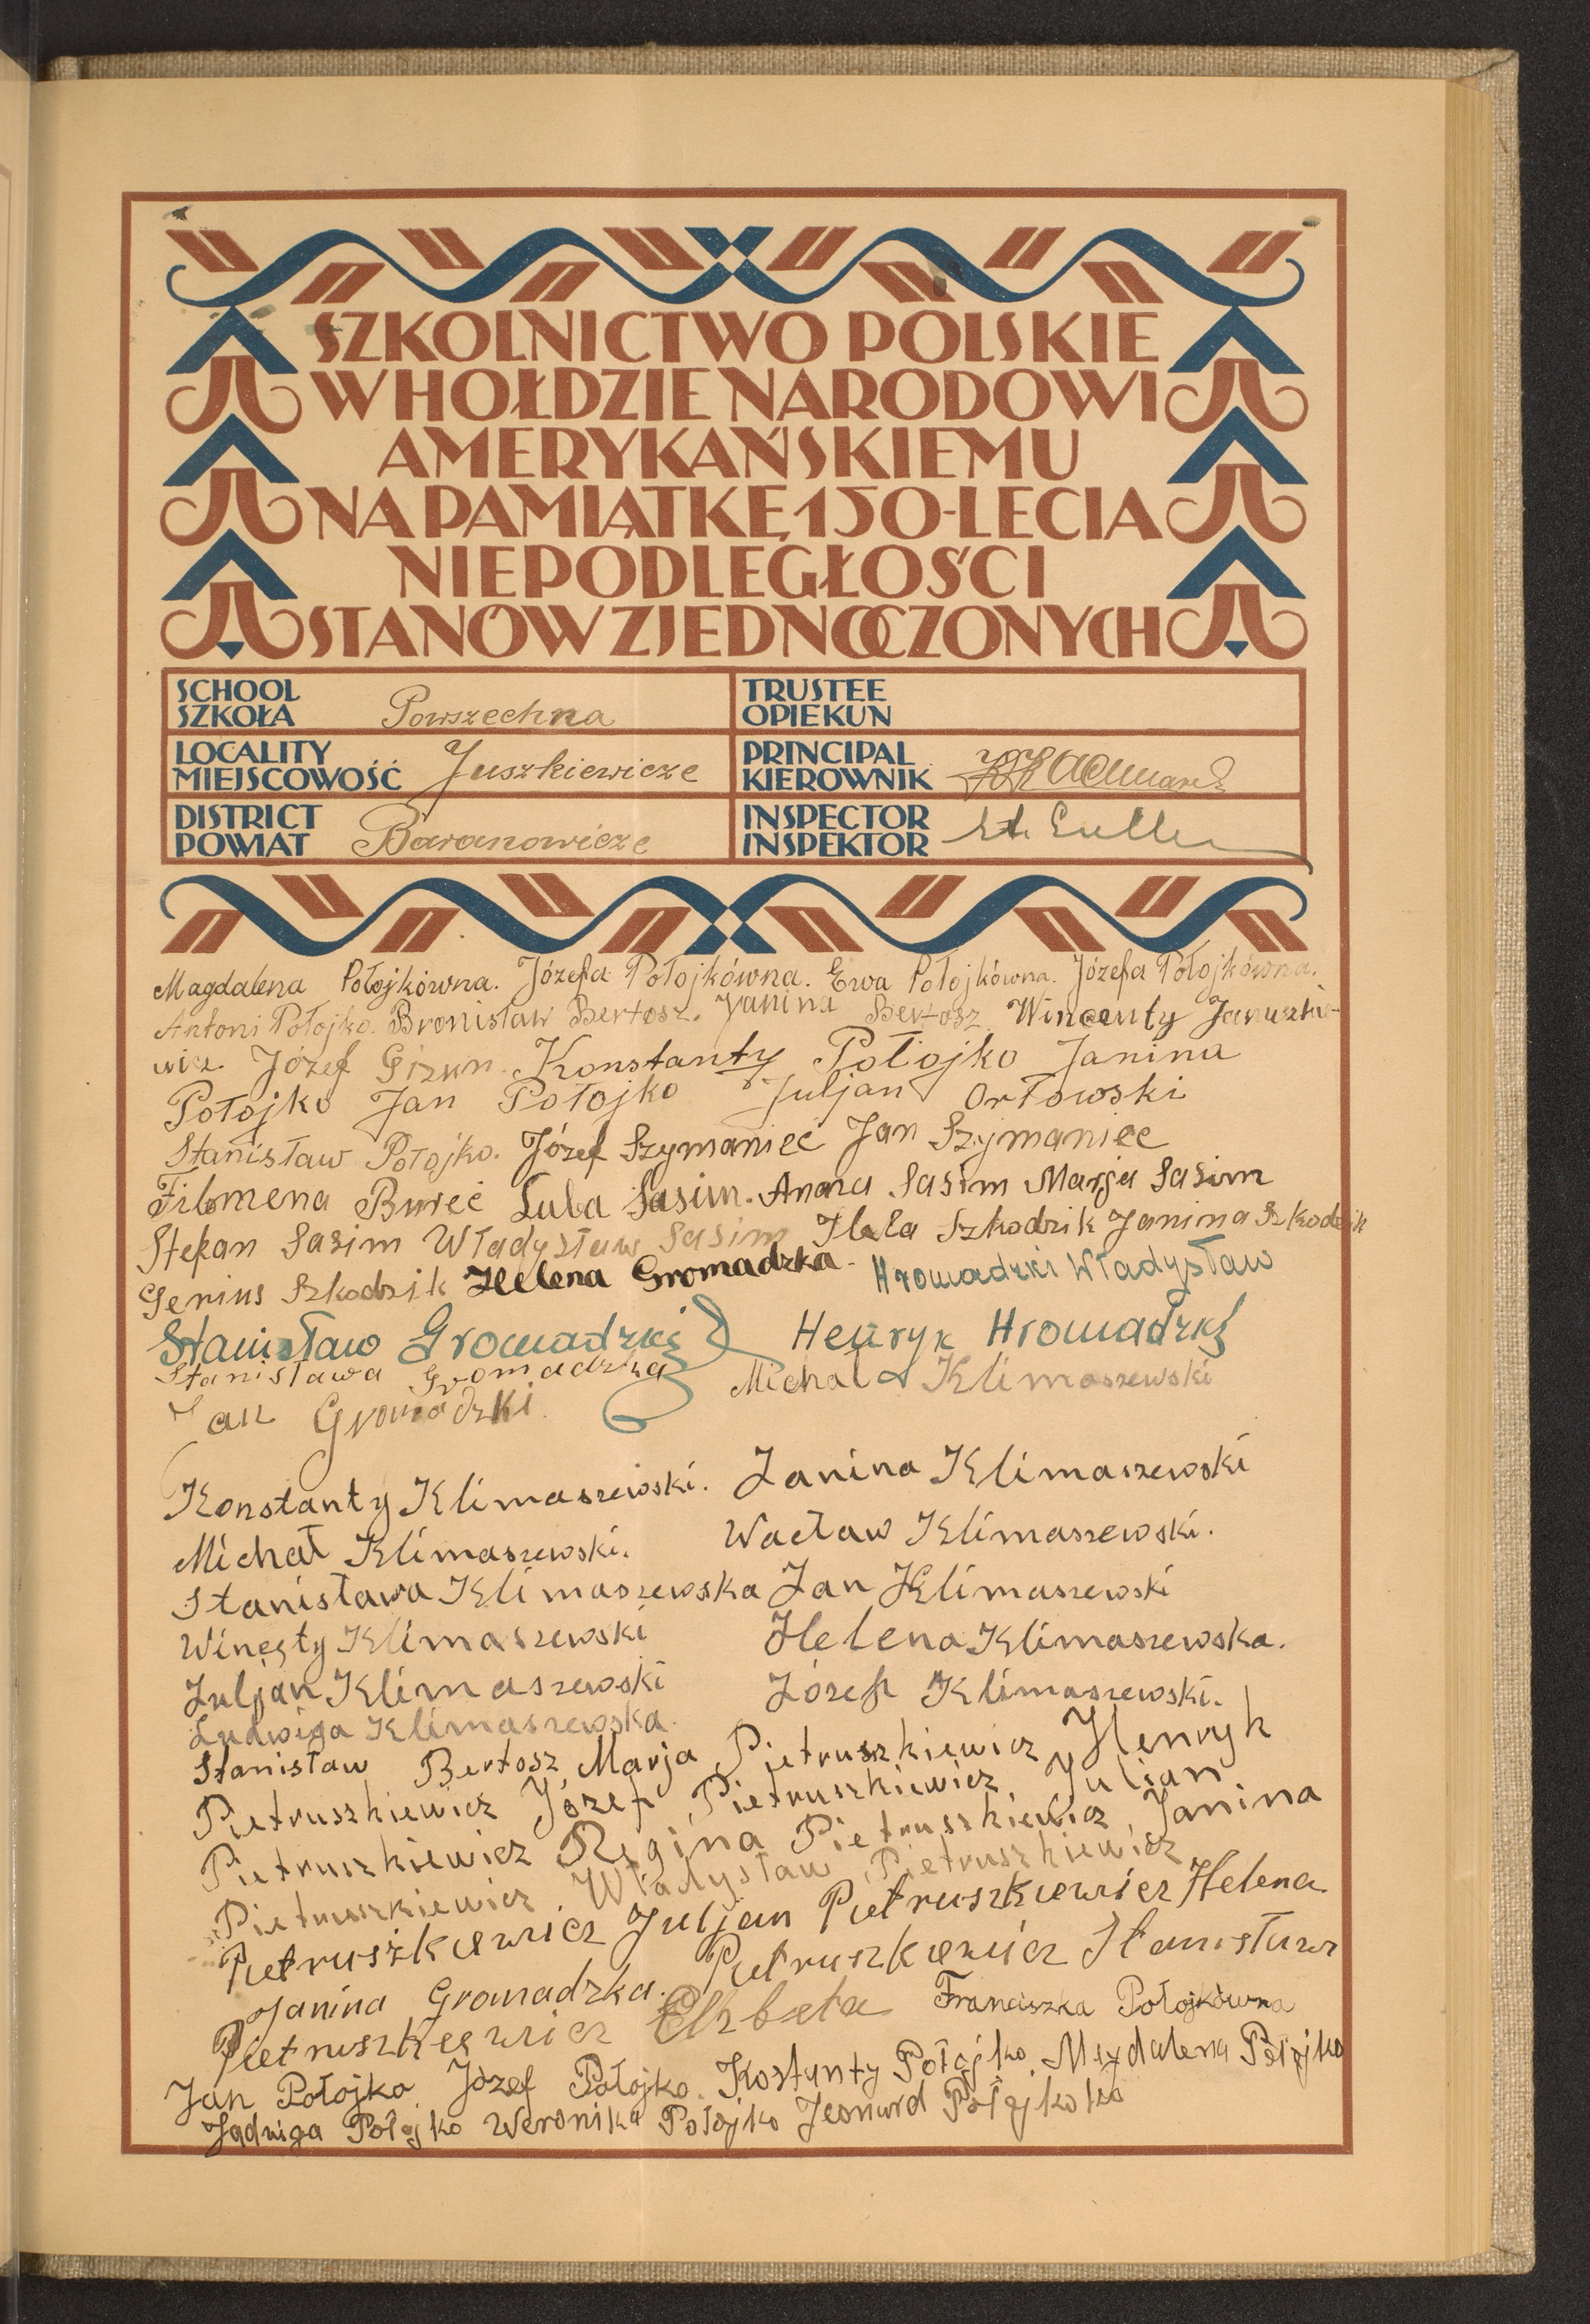 SZKOLNICTWO POLSKIE
W HOŁDZIE NARODOWI
AMERYKAŃSKIEMU
NA PAMIĄTKĘ 150-LECIA
NIEPODLEGŁOŚCI
STANÓW ZJEDNOCZONYCH
SCHOOL
SZKOŁA Powszechna
TRUSTEE
OPIEKUN
LOCALITY
MIEJSCOWOŚĆ Juszkiewicze
PRINCIPAL
KIEROWNIK
DISTRICT
POWIAT Baranowicze
INSPECTOR
INSPEKTOR
Magdalena Połojkówna. Józefa Połojkówna. Ewa Połojkówna. Józefa Połojkówna.
Antoni Połojko. Bronisław Bertosz. Janina Bertosz Wincenty Januszkie-
wicz Józef Gizun. Konstanty Połojko Janina
Połojko Jan Połojko Juljan Orłowski
Stanisław Połojko. Józef Szymaniec Jan Szymaniec
Filomena Bureć Luba Sasim. Sasim Marja Sasim
Stefan Sasim Władysław Sasim Szkodzik Janina Szkodzik
Genius Szkodzik Helena Gromadzka. Hromadzki Władysław
Stanisław Gromadzki Henryk Hromadzki
Stanisława Gromadzka Michał Klimaszewski
Jan Gromadzki.
Konstanty Klimaszewski. Janina Klimaszewski
Michał Klimaszewski. Wacław Klimaszewski.
Stanisława Klimaszewska Jan Klimaszewski
Winęty Klimaszewski Helena Klimaszewska.
Juljan Klimaszewski Józef Klimaszewski.
Ludwiga Klimaszewska.
Stanisław Bertosz Marja Pietruszkiewicz Henryk
Pietruszkiewicz Józef Pietruszkiewicz Julian
Pietruszkiewicz Regina Pietruszkiewicz Janina
Pietruszkiewicz Władysław Pietruszkiewicz
Pietruszkiewicz Juljan Pietruszkiewicz Helena
Janina Gromadzka. Pietruszkiewicz Stanisław
Pietruszkiewicz Elzbeta Franciszka Połojkówna
Jan Połojko Józef Połojko. Kostanty Połojko Magdalena Połojko
Jadwiga Połojko Weronika Połojko Jeonard